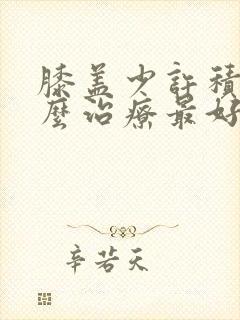 膝盖少許積
麼治療最好
辛若天